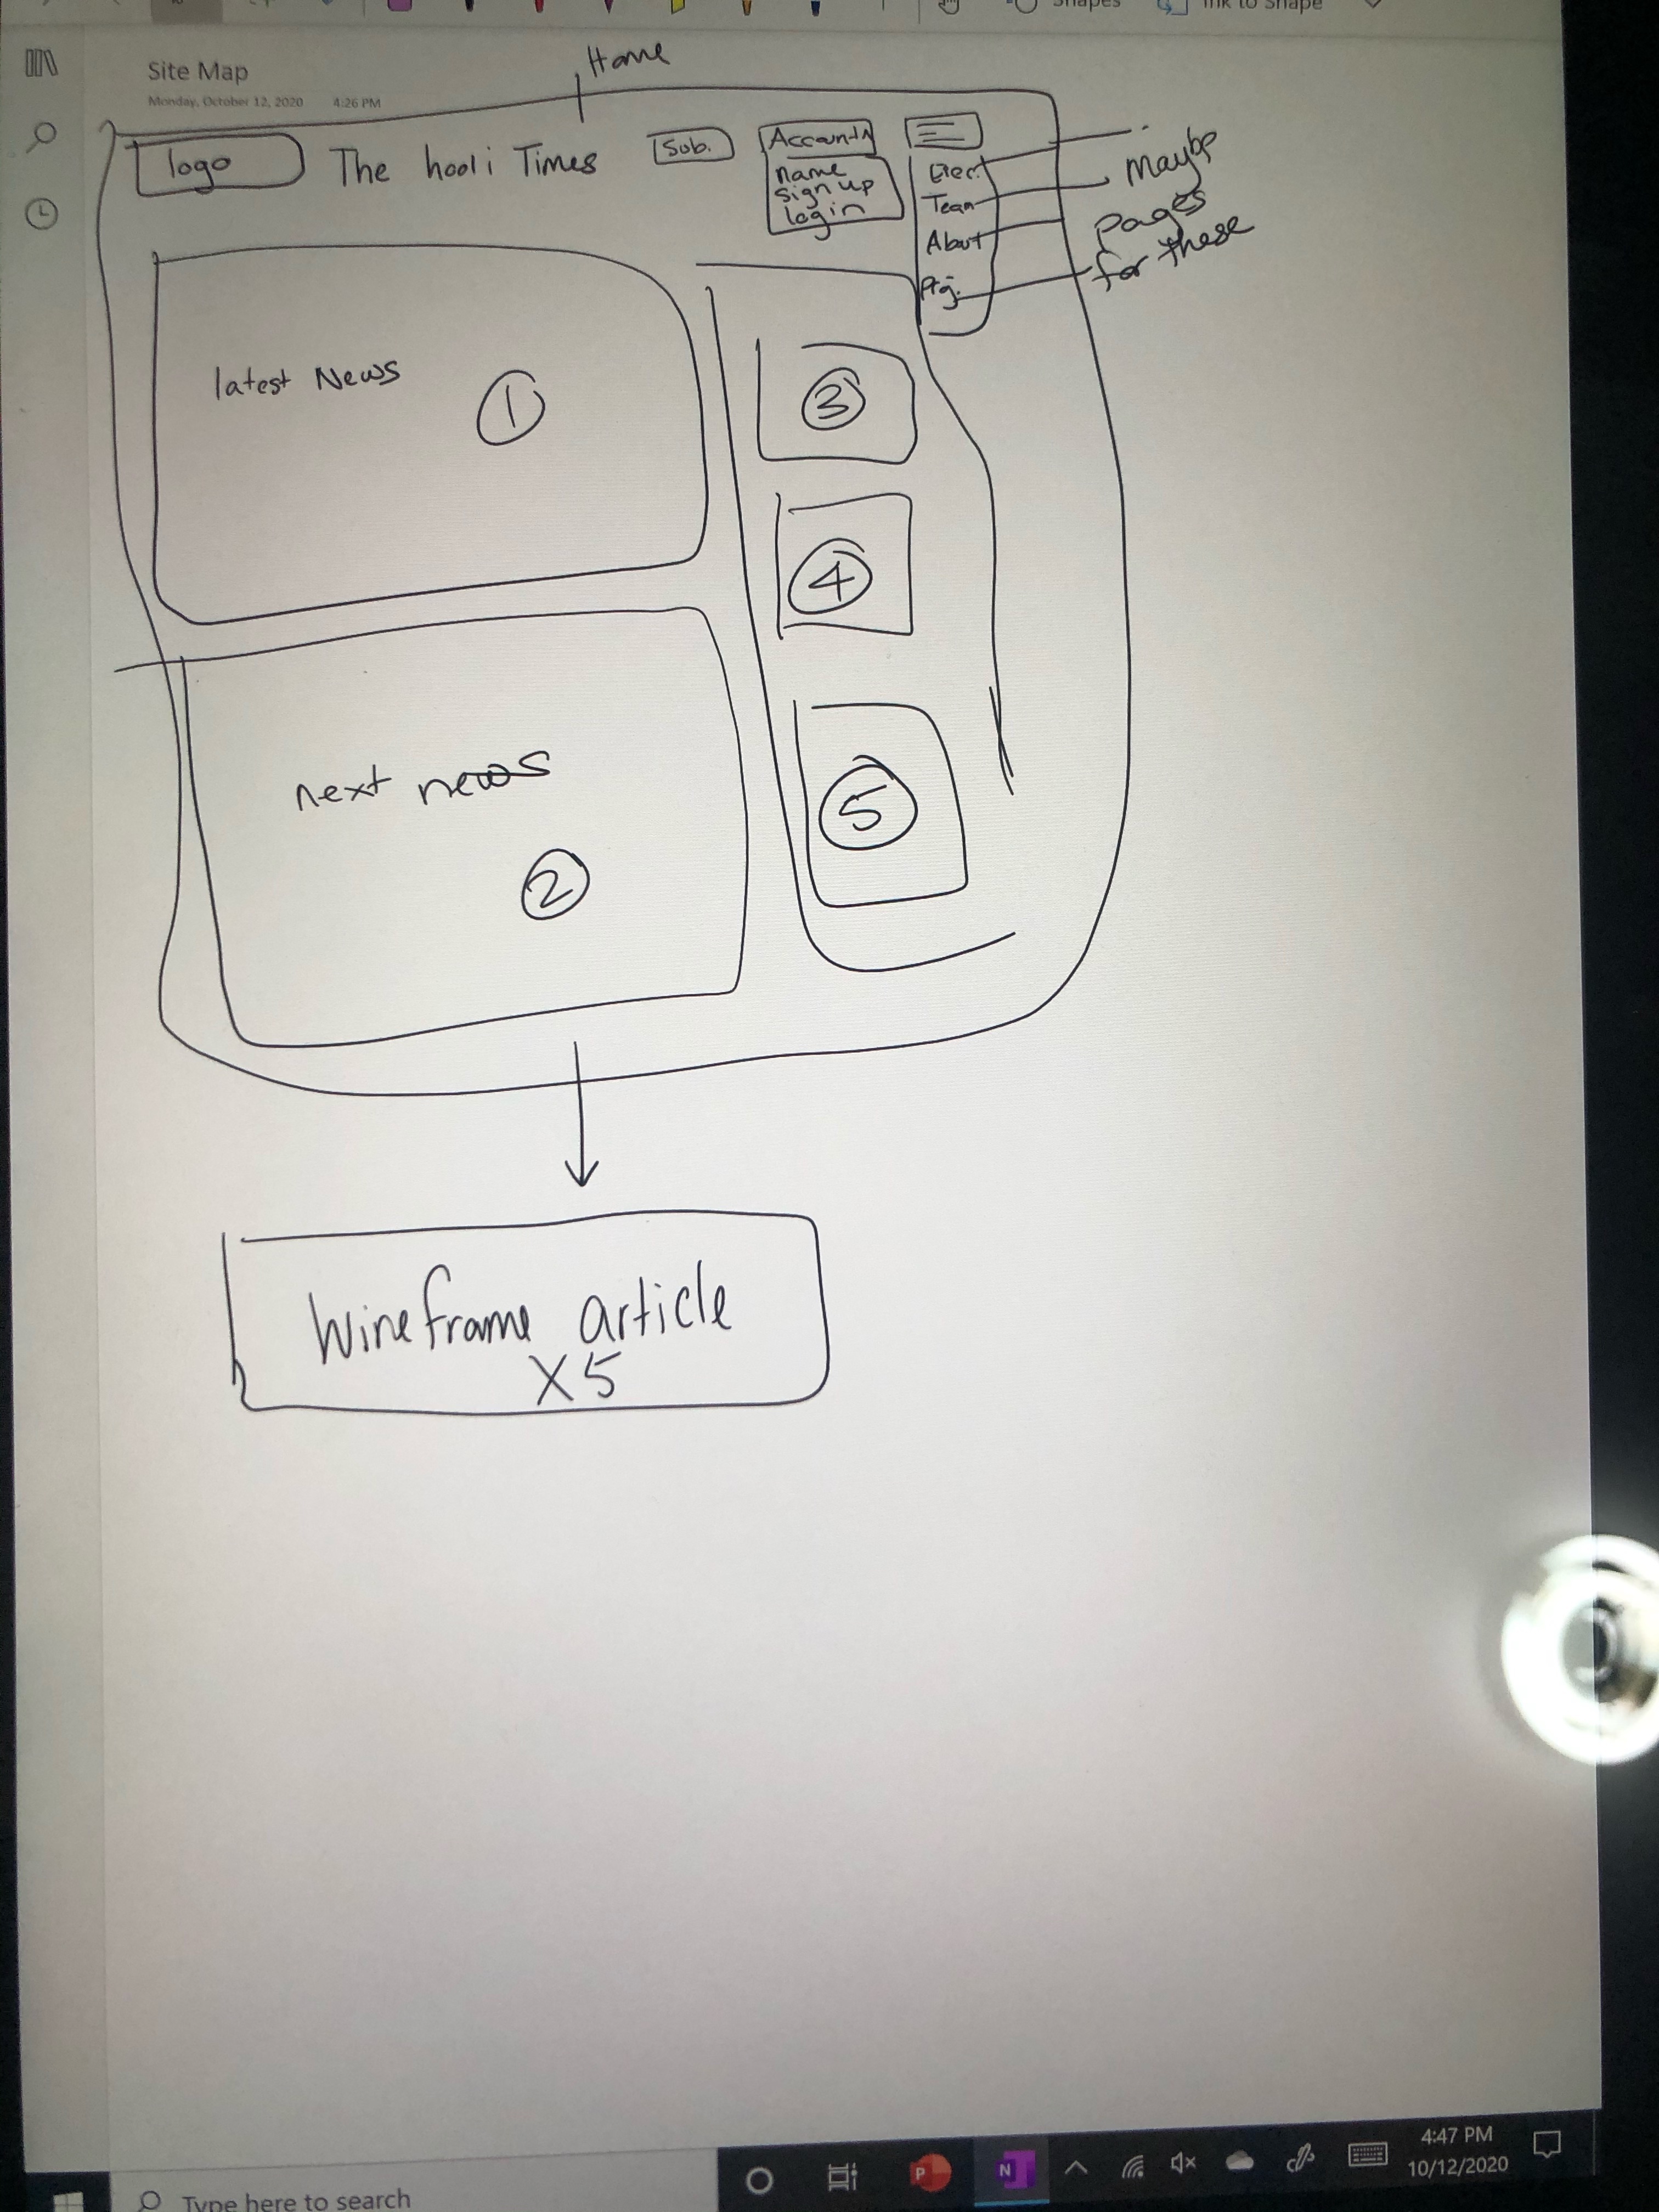 Shapes
Ink to Shape
Site Map
Monday, October 12, 2020 4:26 PM
Home
logo
The hooli Times
Sub.
Account
name
sign up
login
Exec.
Team
About
Prj.
Maybe
pages
for these
latest News
1
3
4
next news
2
5
Wireframe article
X5
4:47 PM
10/12/2020
Type here to search